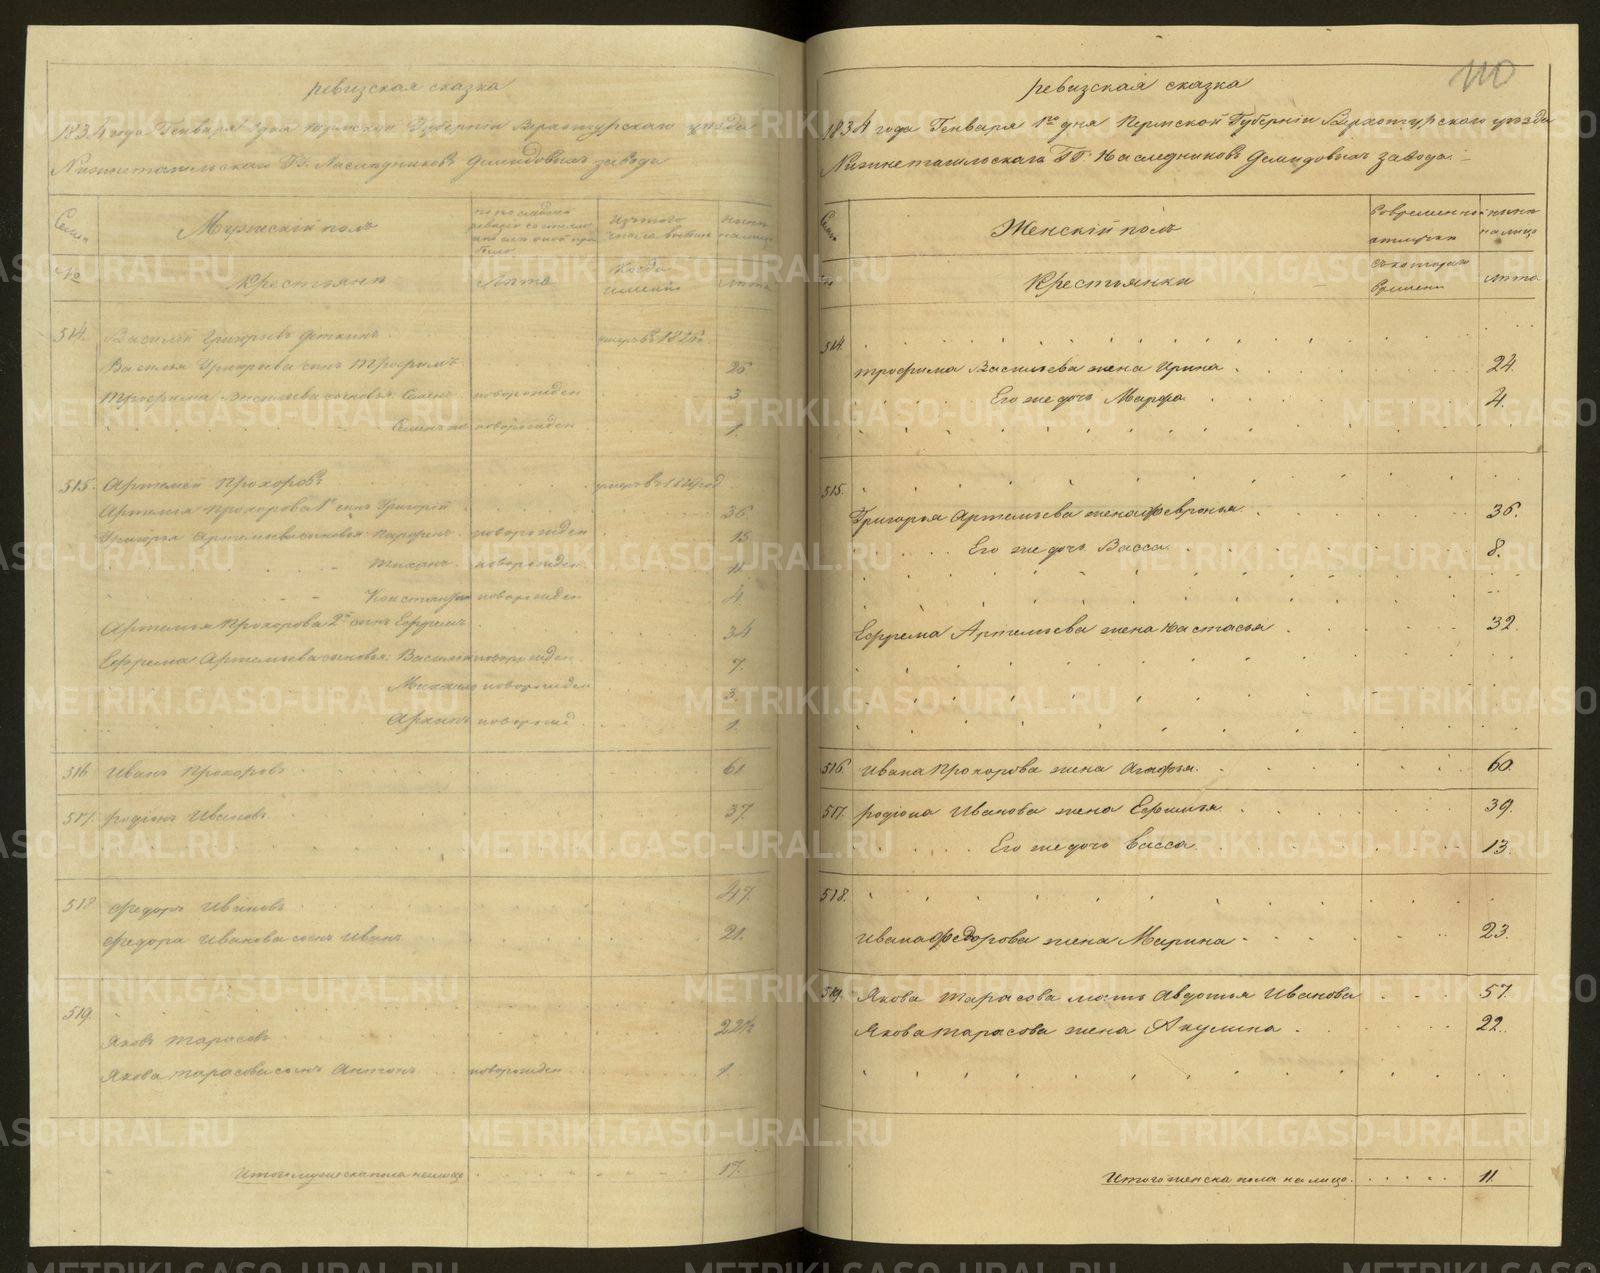 ревизская сказка
1834 года Генваря 1го дня Пермской Губерніи Верхотурскаго уезда
Нижнетагильскаго ГГ. Наследниковъ Демидовыхъ завода
Мужскій полъ
Крестьяне
Лета
Когда именно
Лета
514. Василей Григорьевъ умеръ въ 1826
Василья Григорьева сынъ Трофимъ 26
Трофима Васильева сыновья Семенъ новорожден 3
новорожден 1.
515. Артемей Прохоровъ умеръ въ
Артемья Прохорова 1й сынъ Григорій 36
Григорья Артемьева сыновья Парфенъ новорожден 15
Тихонъ новорожден 11
новорожден 4
Артемья Прохорова 2й сынъ Ефремъ 34
Ефрема Артемьева сыновья: новорожден 7.
Михайло новорожден 3.
Архипъ новорожд 1.
516 Иванъ Прохоровъ 61
517. родіонъ Ивановъ 37.
518 Федоръ Ивановъ 47.
Федора Иванова сынъ Иванъ 21.
519.
Яковъ тарасовъ
Якова тарасова сынъ Антонъ новорожден 1.
Итого мужеска пола налицо 17.
110
ревизская сказка
1834 года Генваря 1го дня Пермской Губерніи Верхотурскаго уезда
Нижнетагильскаго ГГ. Наследниковъ Демидовыхъ завода
Женскій полъ
Крестьянки
лета
514.
трофима Васильева жена Ирина 24.
Его же дочь Марфа 4.
515.
Григорья Артемьева жена февронья 36.
Его же дочь Васса 8.
Ефрема Артемьева жена настасья 32
516. Ивана Прохорова жена Агафья 60.
517. родіона Иванова жена Ефимья 39.
Его же дочь васса 13.
518.
Ивана Федорова жена Марина 23.
519. Якова тарасова мать Авдотья Иванова 57.
Якова тарасова жена Акулина 22.
Итого женска пола налицо 11
METRIKI.GASO-URAL.RU